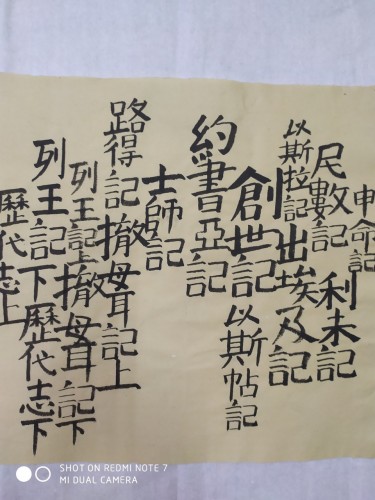 申命記
民數記
利未記
以斯拉記
出埃及記
創世記
以斯帖記
約書亞記
士師記
路得記
撒母耳記上
列王記上
撒母耳記下
列王記下
歷代志下
歷代志上
SHOT ON REDMI NOTE 7
MI DUAL CAMERA